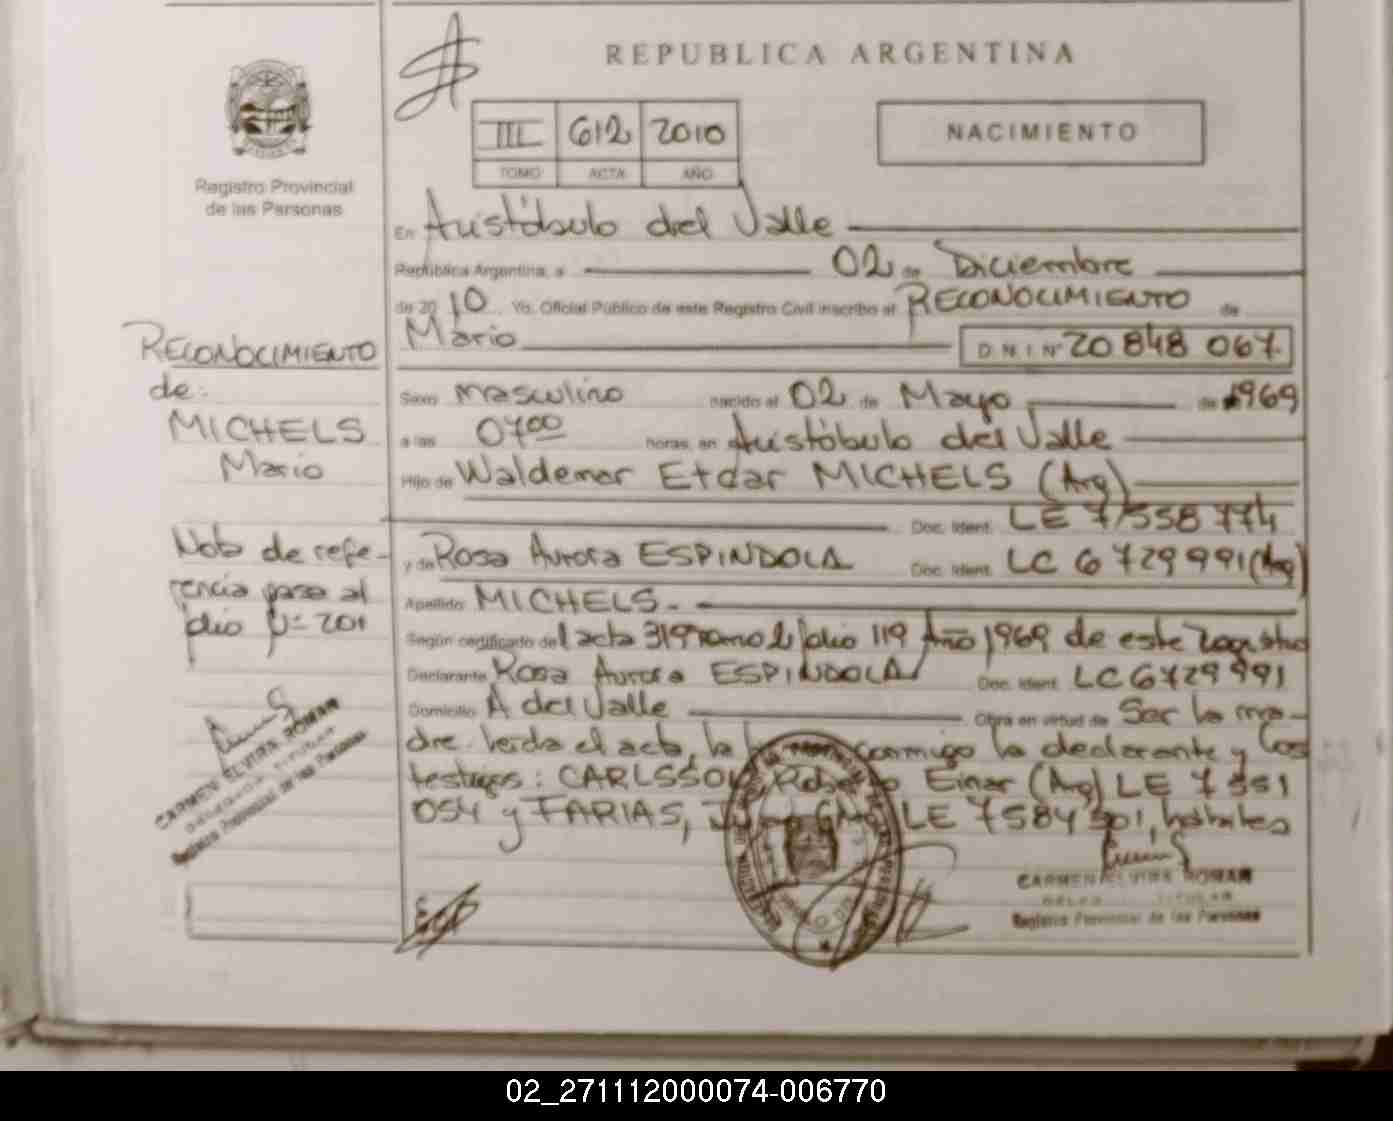 REPUBLICA ARGENTINA
III 612 2010
TOMO ACTA AÑO
NACIMIENTO
Registro Provincial
de las Personas
En Aristóbulo del Valle
República Argentina, a 02 de Diciembre
de 20 10 Yo, Oficial Público de este Registro Civil inscribo el RECONOCIMIENTO de
Mario D N I Nº 20 848 067.
Sexo masculino nacido el 02 de Mayo de 1969
a las 07 00 horas, en Aristóbulo del Valle
Hijo de Waldemar Etdar MICHELS (Arg)
Doc. Ident. LE 7558 774
y de Rosa Aurora ESPINDOLA Doc. Ident. LC 6 729 991 (Arg)
Apellido MICHELS.-
Según certificado del acta 319 tomo 2 folio 119 Año 1969 de este Registro
Declarante Rosa Aurora ESPINDOLA Doc. Ident. LC 6729 991
Domicilio A del Valle Obra en virtud de Ser la ma-
dre. Leida el acta, la conmigo la declarante y los
testigos: CARLSSON Roberto Einar (Arg) LE 7 551
054 y FARIAS, LE 7584 901, habiles
CARMEN ELVIRA ROMAN
TITULAR
Registro Provincial de las Personas
RECONOCIMIENTO
de:
MICHELS
Mario
Nota de refe-
rencia pasa al
folio Nº 201
CARMEN ELVIRA ROMAN
Registro Provincial de las Personas
02_271112000074-006770